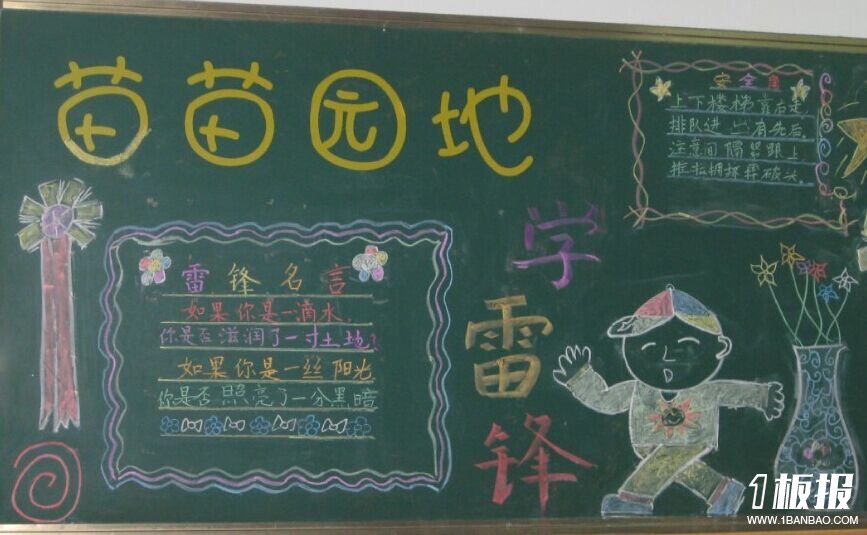 苗苗园地
雷锋名言
如果你是一滴水，
你是否滋润了一寸土地？
如果你是一丝阳光
你是否照亮了一分黑暗
学雷锋
安全
上下楼梯靠右走
排队进出有先后
注意间隔紧跟上
推拉拥挤
1板报
WWW.1BANBAO.COM